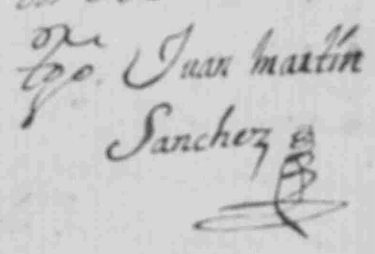 tgo. Juan martin
Sanchez